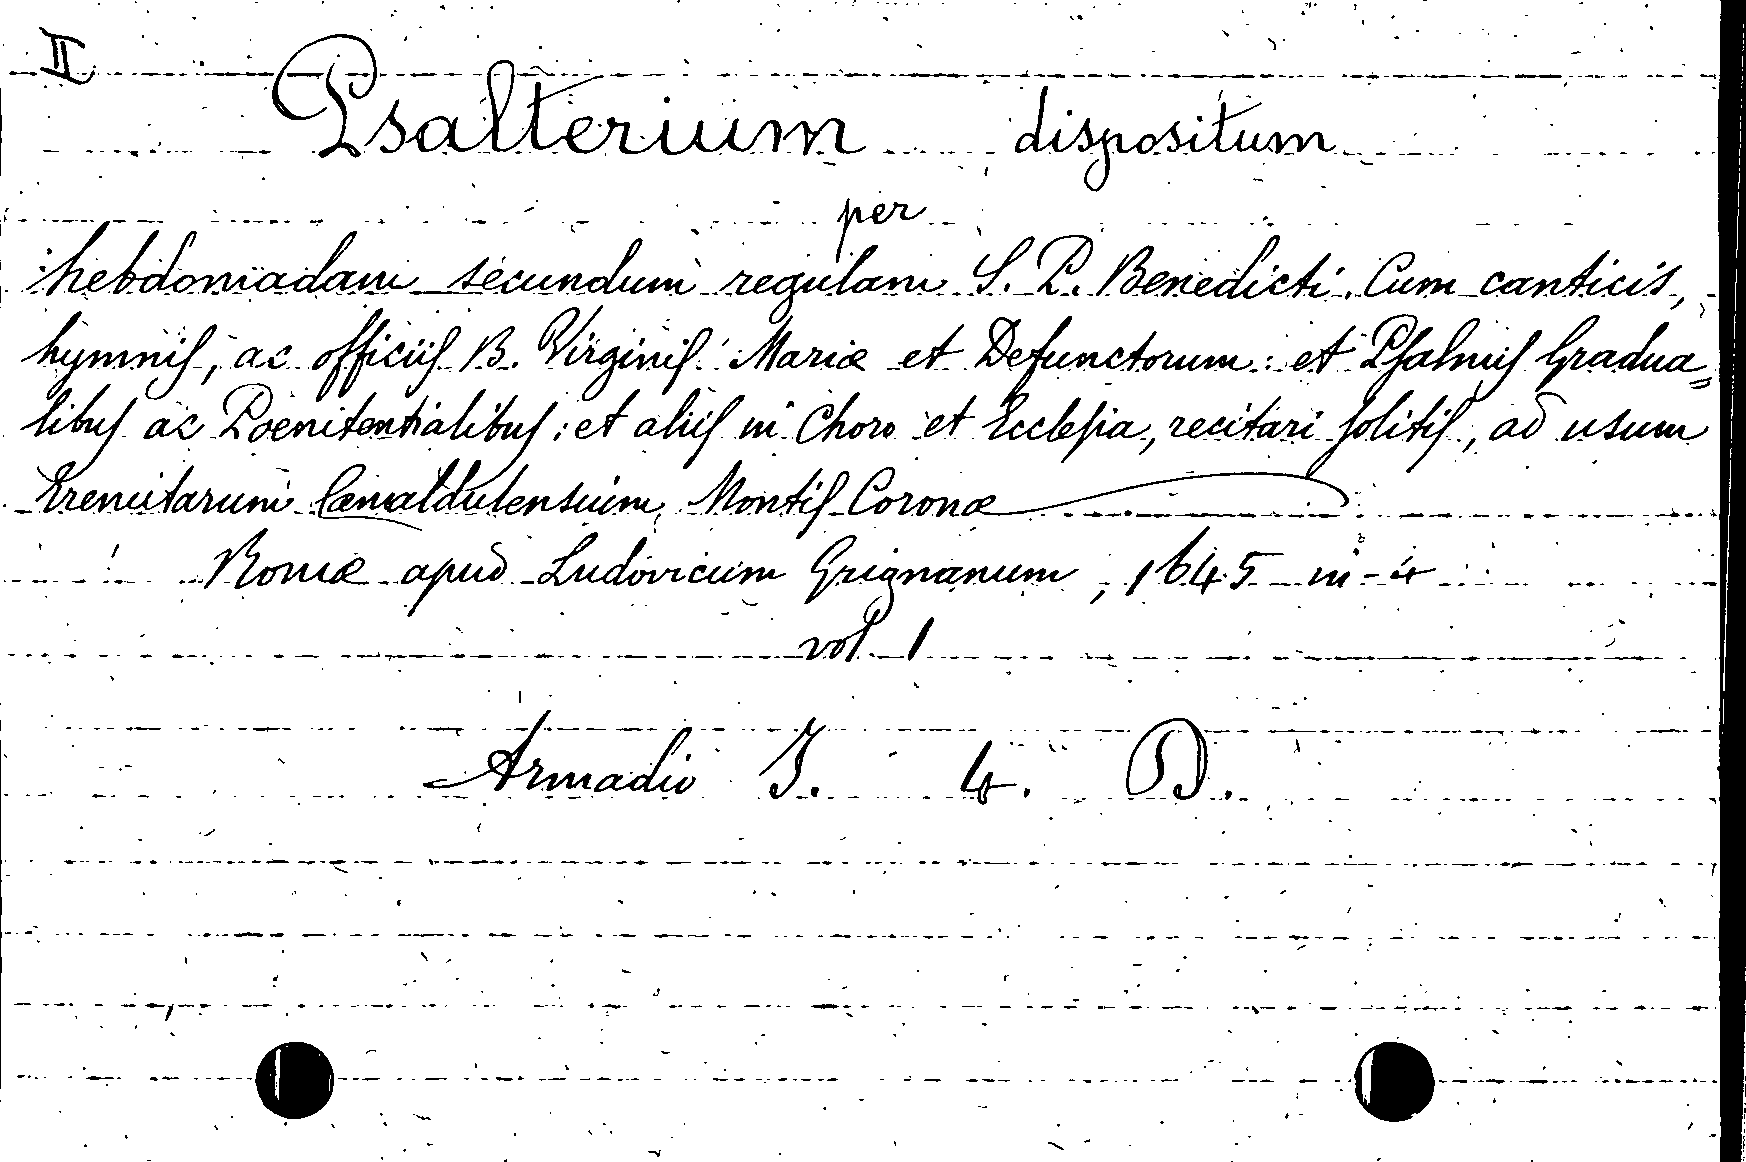 II
Psalterium dispositum
per
hebdomadam secundum regulam S. P. Benedicti. Cum canticis,
hymniſ, ac officiiſ B. Virginiſ Mariæ et Defunctorum: et Pſalmiſ Gradua=
libuſ ac Poenitentialibuſ: et aliiſ in Choro et Eccleſia, recitari ſolitiſ, ad usum
Eremitarum Camaldulensium, Montiſ Coronæ
Romæ apud Ludovicum Grignanum, 1645 in-4
vol. 1
Armadio I. 4. D.